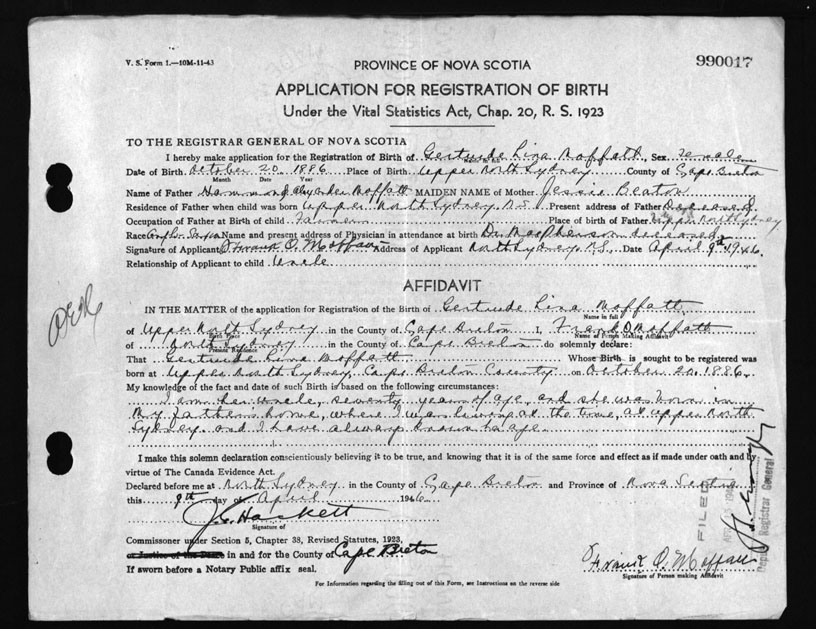 V. S. Form 1.—10M-11-43
PROVINCE OF NOVA SCOTIA
990017
APPLICATION FOR REGISTRATION OF BIRTH
Under the Vital Statistics Act, Chap. 20, R. S. 1923
TO THE REGISTRAR GENERAL OF NOVA SCOTIA
I hereby make application for the Registration of Birth of Gertrude Lina Moffatt, Sex Female
Date of Birth October 20 1886 Place of Birth Upper North Sydney County of Cape Breton
Month Date Year
Name of Father Hammond Alexander Moffatt MAIDEN NAME of Mother Jessie Beaton
Residence of Father when child was born Upper North Sydney N.S. Present address of Father Deceased
Occupation of Father at Birth of child Place of birth of Father Upper North Sydney
Race Name and present address of Physician in attendance at birth Dr. deceased
Signature of Applicant Frank O. Moffatt Address of Applicant North Sydney N.S. Date April 9th 1946
Relationship of Applicant to child Uncle
AFFIDAVIT
IN THE MATTER of the application for Registration of the Birth of Gertrude Lina Moffatt
Name in full
of Upper North Sydney in the County of Cape Breton I, Frank O Moffatt
Birth Place Name of Person Making Affidavit
of North Sydney in the County of Cape Breton do solemnly declare:
Present Residence
That Gertrude Lina Moffatt Whose Birth is sought to be registered was
born at Upper North Sydney, Cape Breton County on October 20, 1886.
My knowledge of the fact and date of such Birth is based on the following circumstances:
I am her uncle, seventy years of age, and she was born in
my father's home, where I was living at the time, at Upper North
Sydney. and I have always known her age.
I make this solemn declaration conscientiously believing it to be true, and knowing that it is of the same force and effect as if made under oath and by
virtue of The Canada Evidence Act.
Declared before me at North Sydney in the County of Cape Breton and Province of Nova Scotia
this 9th day of April 1946
Hackett
Signature of
Commissioner under Section 5, Chapter 38, Revised Statutes, 1923,
or Justice of the Peace in and for the County of Cape Breton
If sworn before a Notary Public affix seal.
Frank O. Moffatt
Signature of Person making Affidavit
For Information regarding the filling out of this Form, see Instructions on the reverse side
FILED
Deputy Registrar General